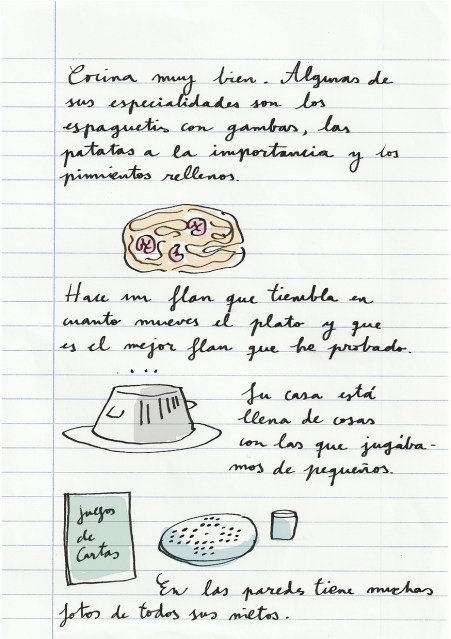 Cocina muy bien. Algunas de
sus especialidades son los
espaguetis con gambas, las
patatas a la importancia y los
pimientos rellenos.
Hace un flan que tiembla en
cuanto mueves el plato y que
es el mejor flan que he probado.
Su casa está
llena de cosas
con las que jugába-
mos de pequeños.
juegos
de
cartas
En las paredes tiene muchas
fotos de todos sus nietos.